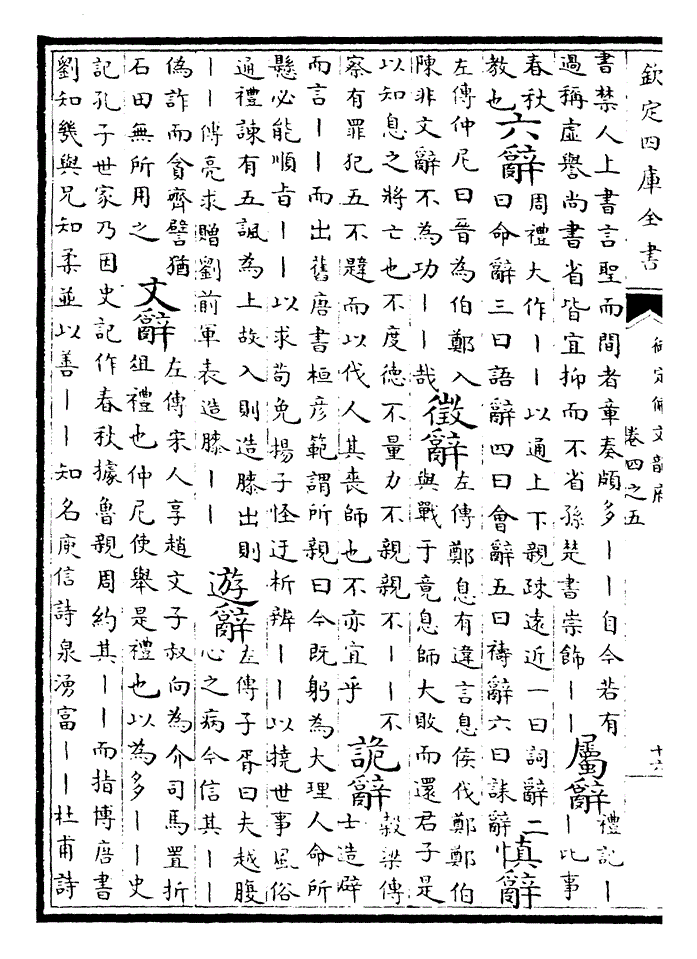 欽定四庫全書
御定佩文韻府
卷四之五
十六
書禁人上書言聖而間者章奏頗多丨丨自今若有
過稱虛譽尚書省皆宜抑而不省孫楚書崇飾丨丨
屬辭
禮記丨
丨比事
春秋
教也
六辭
周禮大作丨丨以通上下親疎遠近一曰詞辭二
曰命辭三曰語辭四曰會辭五曰禱辭六曰誄辭
慎辭
左傳仲尼曰晉為伯鄭入
陳非文辭不為功丨丨哉
徵辭
左傳鄭息有違言息侯伐鄭鄭伯
與戰于竟息師大敗而還君子是
以知息之將亡也不度德不量力不親親不丨丨不
察有罪犯五不韙而以伐人其喪師也不亦宜乎
詭辭
榖梁傳
士造辟
而言丨丨而出舊唐書桓彦範謂所親曰今既躬為大理人命所
懸必能順旨丨丨以求苟免揚子怪迂析辨丨丨以撓世事風俗
通禮諫有五諷為上故入則造膝出則
丨丨傅亮求贈劉前軍表造膝丨丨
遊辭
左傳子胥曰夫越腹
心之病今信其丨丨
偽詐而貪齊譬猶
石田無所用之
文辭
左傳宋人享趙文子叔向為介司馬置折
俎禮也仲尼使舉是禮也以為多丨丨史
記孔子世家乃因史記作春秋據魯親周約其丨丨而指博唐書
劉知幾與兄知柔並以善丨丨知名庾信詩泉湧富丨丨杜甫詩